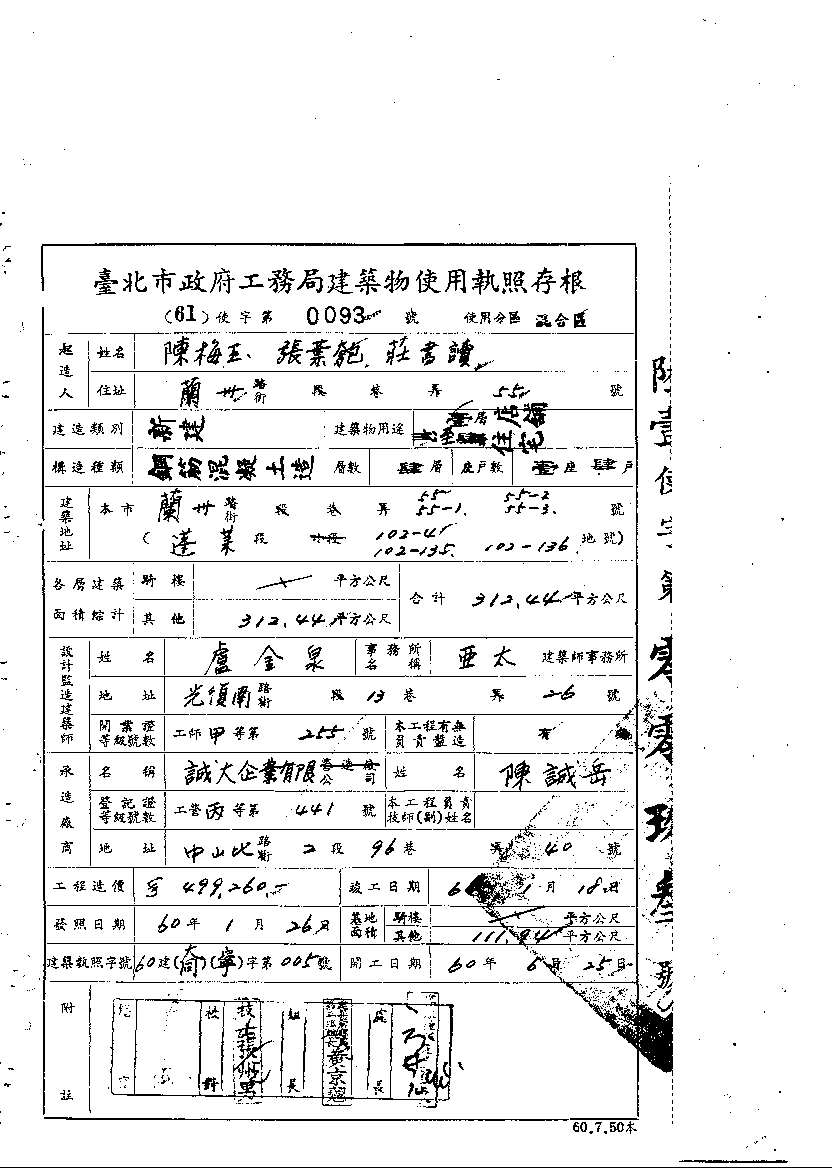 臺北市政府工務局建築物使用執照存根
(61)使字第 0093 號 使用分區 混合區
起造人 姓名 陳梅玉、張葉匏、莊書讀
住址 蘭州路街 段 巷 弄 55 號
建造類別 新建 建築物用途 壹層店舖 住宅
構造種類 鋼筋混凝土造 層數 肆層 座戶數 壹座肆戶
建築地址 本市 蘭州路街 段 巷 弄 55 55-1. 55-2 55-3. 號
(蓬萊段 小段 102-41 102-135. 102-136 地號)
各層建築面積綜計 騎樓 平方公尺 合計 312.44 平方公尺
其他 312.44 平方公尺
設計監造建築師 姓名 盧金泉 事務所名稱 亞太 建築師事務所
地址 光復南路街 段 13 巷 弄 26 號
開業證等級號數 工師甲等第 255 號 本工程有無負責監造 有
承造廠商 名稱 誠大企業有限公司 姓名 陳誠岳
登記證等級號數 工營丙等第 441 號 本工程負責技師(副)姓名
地址 中山北路街 2 段 96 巷 弄 40 號
工程造價 499,260.- 竣工日期 1 月 18 日
發照日期 60 年 1 月 26 日 基地面積 騎樓 平方公尺
其他 111.94 平方公尺
建築執照字號 60 建( )(寧)字第 005 號 開工日期 60 年 6 月 25 日
附註
技 組長 處長
60.7.50本
陸壹使字第零零玖叁號